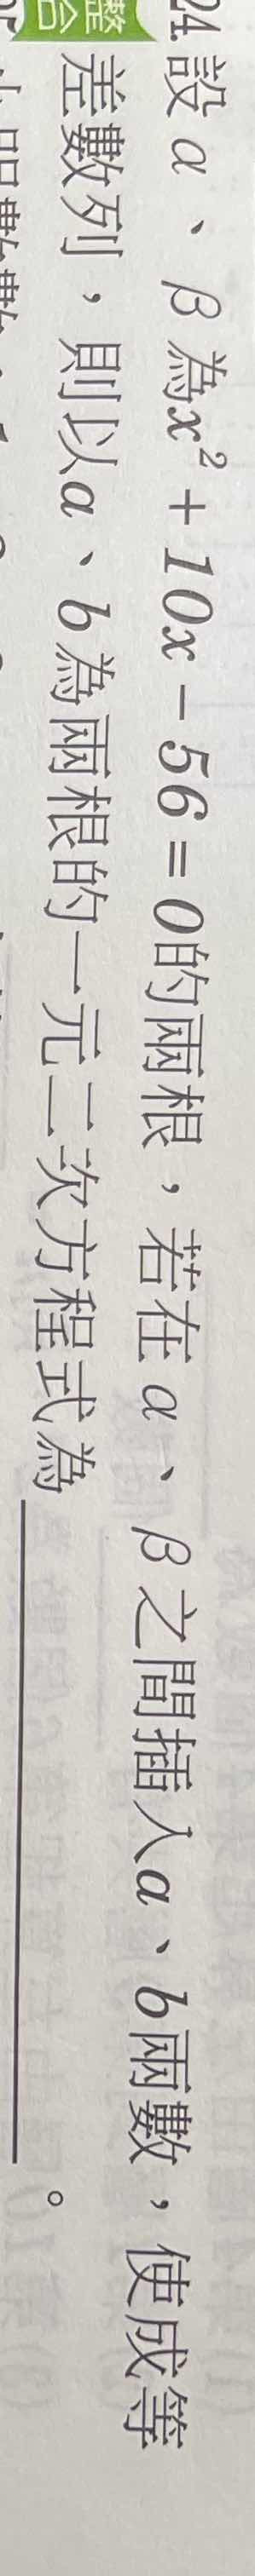 24. 設α、β為x² + 10x - 56 = 0的兩根，若在α、β之間插入a、b兩數，使成等
整合 差數列，則以a、b為兩根的一元二次方程式為＿＿＿＿＿＿。